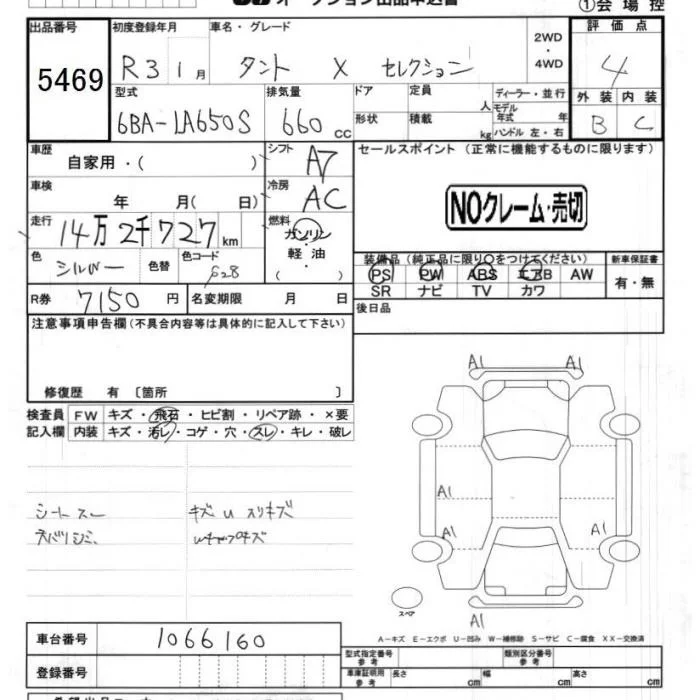 オークション出品申込書
①会場控
出品番号
5469
初度登録年月
R3 1月
車名・グレード
タント X セレクション
2WD
・
4WD
評価点
4
外装 内装
B C
型式
6BA-LA650S
排気量
660 cc
ドア
形状
定員 人
積載 kg
ディーラー・並行
モデル年式 年
ハンドル 左・右
車歴
自家用・( )
シフト
A7
セールスポイント (正常に機能するものに限ります)
NOクレーム・売切
車検
年 月( 日)
冷房
AC
走行
14万2千727km
燃料
ガソリン
・
軽油
( )
色
シルバー
色替
色コード
S28
装備品 (純正品に限り○をつけてください)
PS PW ABS エアB AW
SR ナビ TV カワ
新車保証書
有・無
R券 7150 円
名変期限 月 日
後日品
注意事項申告欄(不具合内容等は具体的に記入して下さい)
修復歴 有 〔箇所 〕
検査員記入欄
FW キズ・飛石・ヒビ割・リペア跡・×要
内装 キズ・汚レ・コゲ・穴・スレ・キレ・破レ
シートスレ
キズ U スリキズ
A1
A1
A1
A1
A1
A1
スペア
A－キズ E－エクボ U－凹み W－補修跡 S－サビ C－腐食 XX－交換済
車台番号
1066160
登録番号
型式指定番号 参考
類別区分番号 参考
車庫証明用 参考
長さ cm
幅 cm
高さ cm
希望出品コーナー